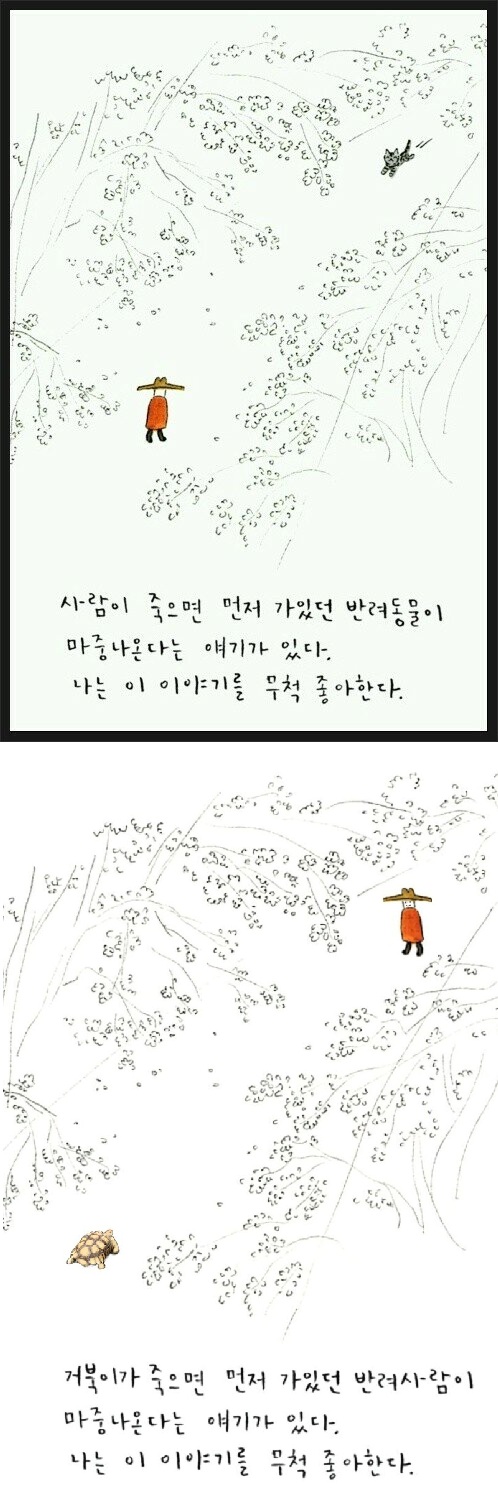 사람이 죽으면 먼저 가있던 반려동물이
마중나온다는 얘기가 있다.
나는 이 이야기를 무척 좋아한다.
거북이가 죽으면 먼저 가있던 반려사람이
마중나온다는 얘기가 있다.
나는 이 이야기를 무척 좋아한다.